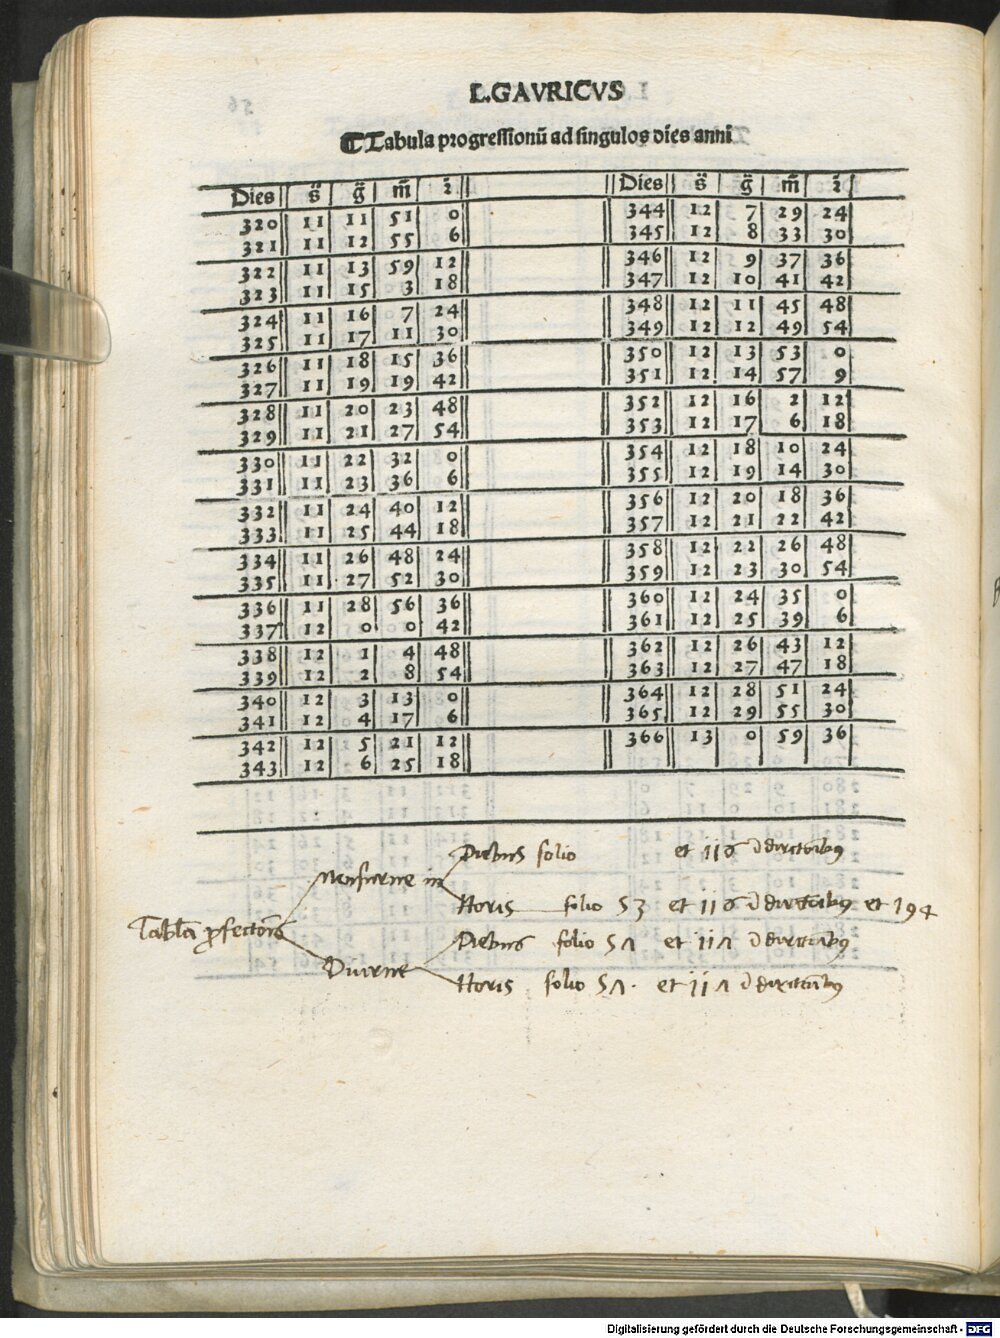 L.GAVRICVS
Tabula progressionū ad singulos dies anni
Dies s̄ ḡ m̄ 2̄
320 11 11 51 0
321 11 12 55 6
322 11 13 59 12
323 11 15 3 18
324 11 16 7 24
325 11 17 11 30
326 11 18 15 36
327 11 19 19 42
328 11 20 23 48
329 11 21 27 54
330 11 22 32 0
331 11 23 36 6
332 11 24 40 12
333 11 25 44 18
334 11 26 48 24
335 11 27 52 30
336 11 28 56 36
337 12 0 0 42
338 12 1 4 48
339 12 2 8 54
340 12 3 13 0
341 12 4 17 6
342 12 5 21 12
343 12 6 25 18
Dies s̄ ḡ m̄ 2̄
344 12 7 29 24
345 12 8 33 30
346 12 9 37 36
347 12 10 41 42
348 12 11 45 48
349 12 12 49 54
350 12 13 53 0
351 12 14 57 9
352 12 16 2 12
353 12 17 6 18
354 12 18 10 24
355 12 19 14 30
356 12 20 18 36
357 12 21 22 42
358 12 22 26 48
359 12 23 30 54
360 12 24 35 0
361 12 25 39 6
362 12 26 43 12
363 12 27 47 18
364 12 28 51 24
365 12 29 55 30
366 13 0 59 36
Diebus folio et 116
in
Horis folio 53 et 116 et 194
Diebus folio 5Λ et 11Λ
Diurne
Horis folio 5Λ. et 11Λ
Digitalisierung gefördert durch die Deutsche Forschungsgemeinschaft - DFG